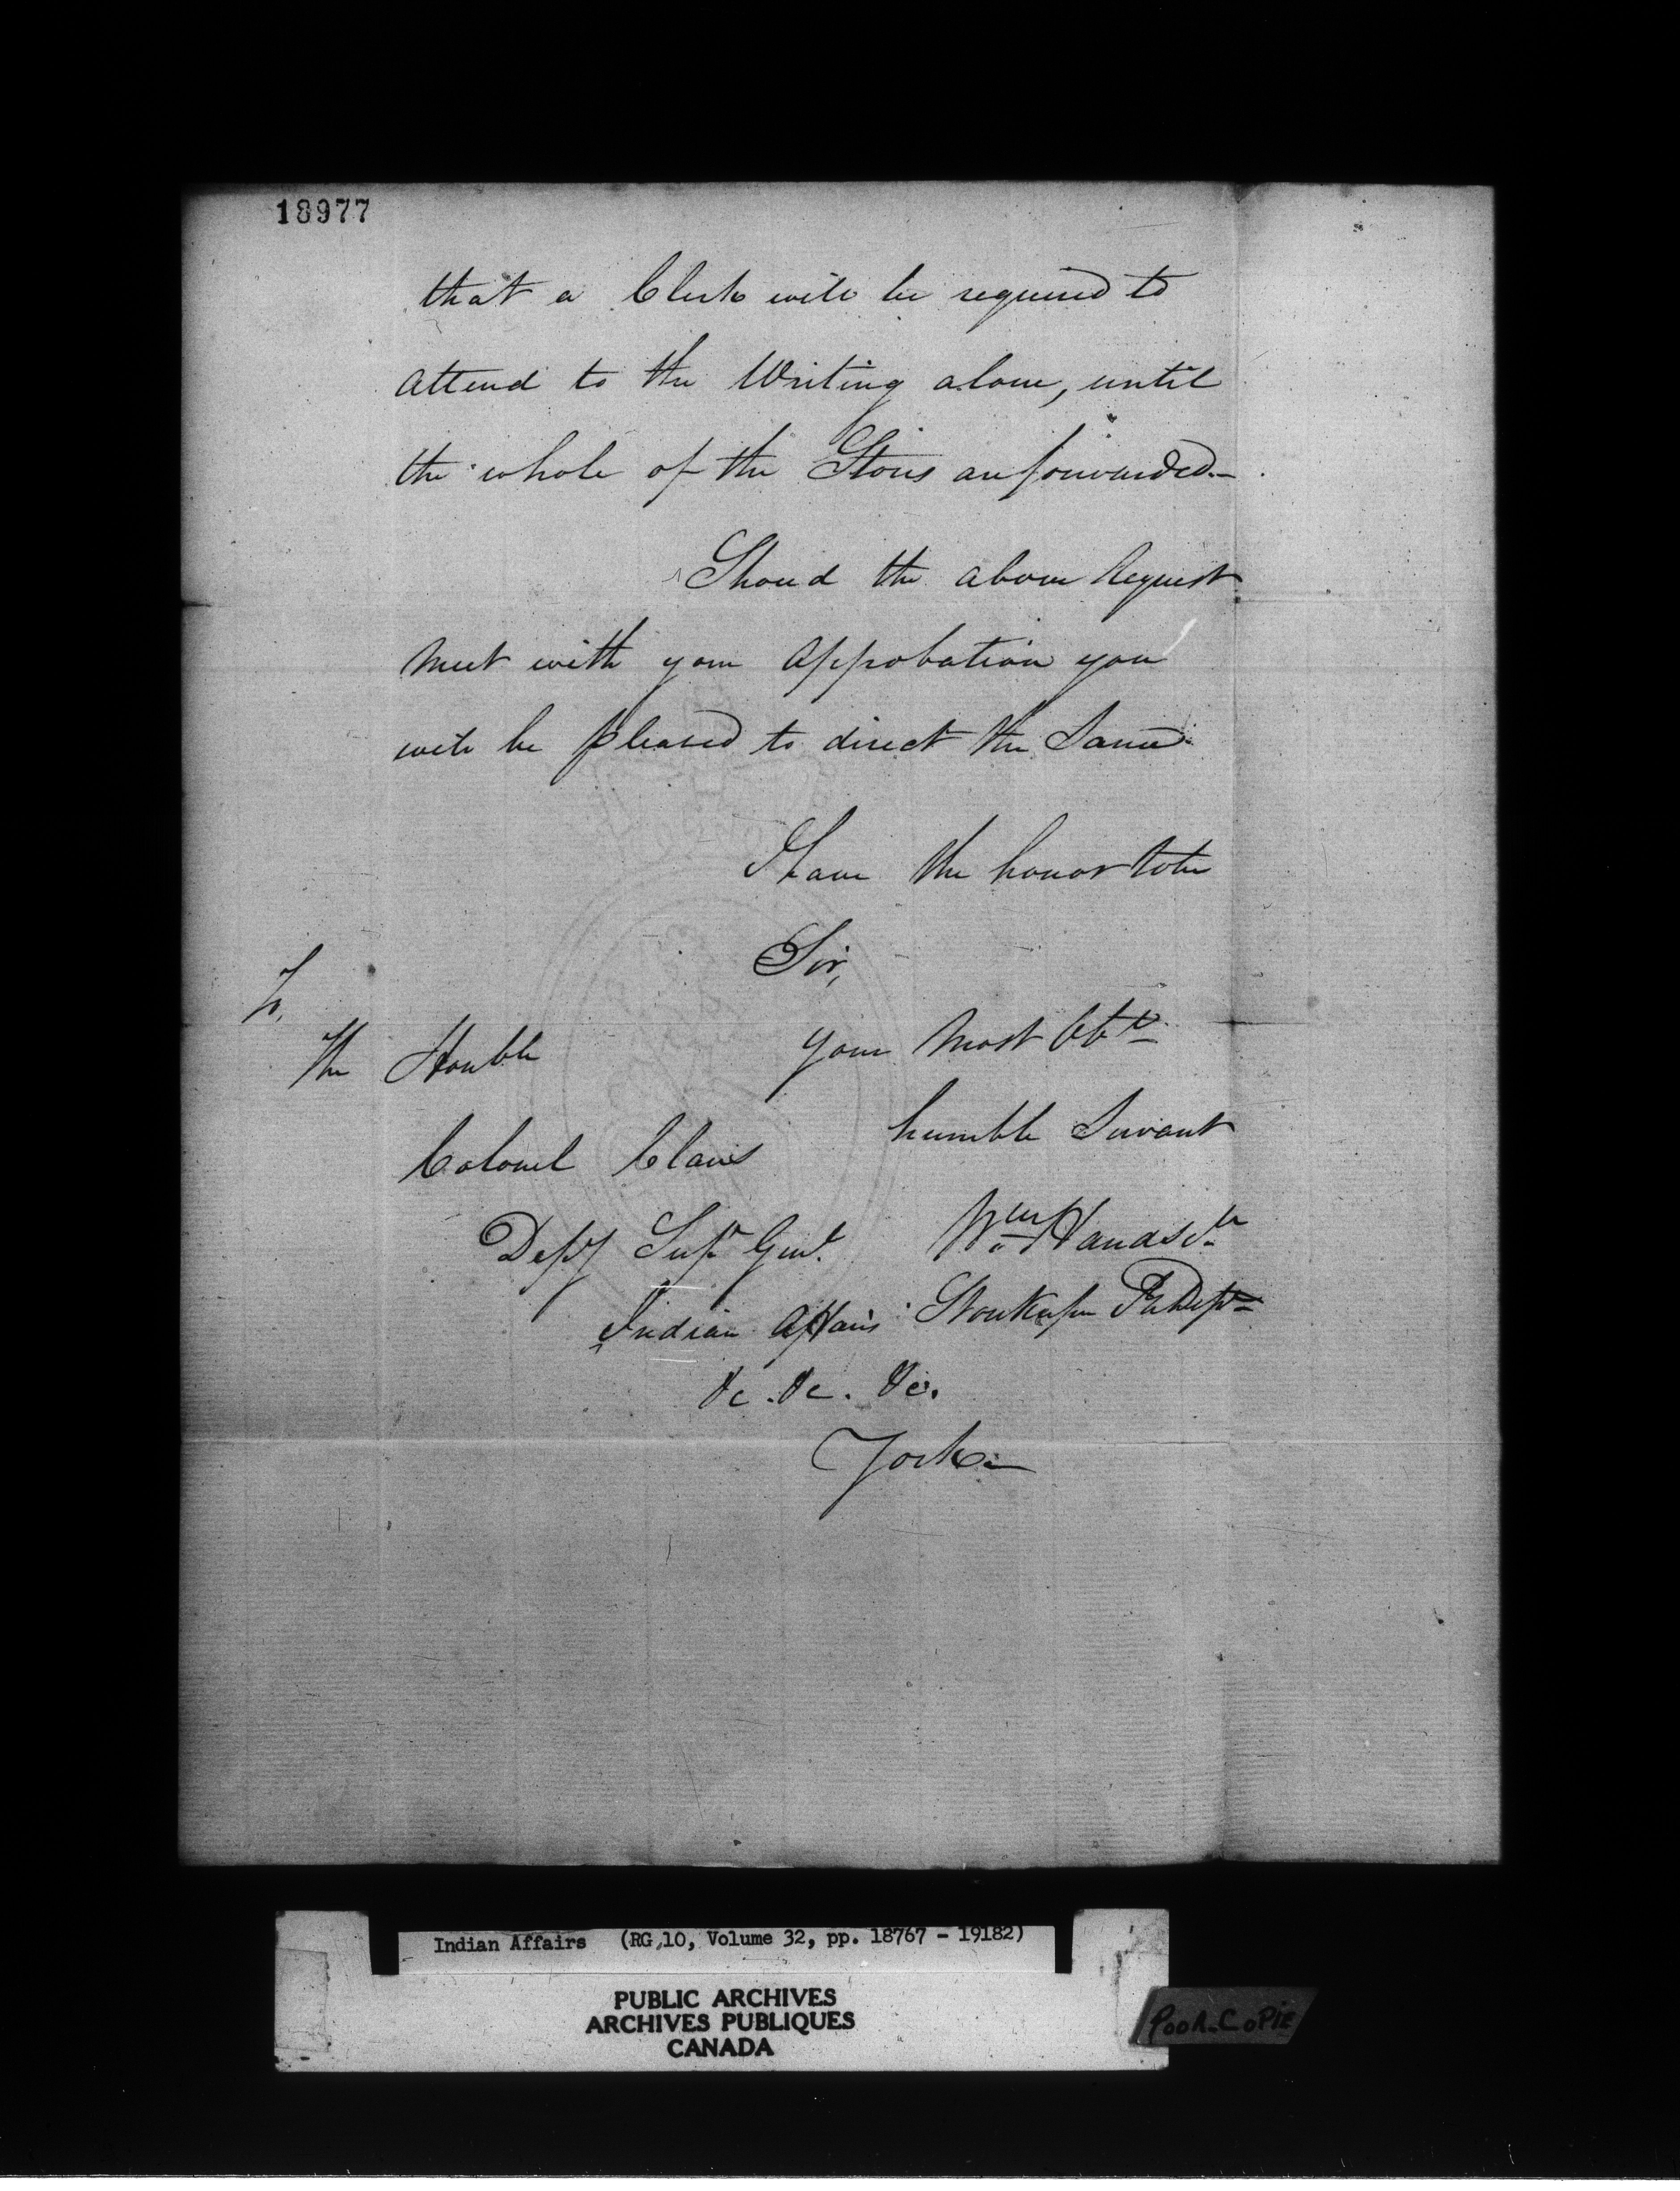 18977
that a Clerk will be required to
attend to the Writing alone, until
the whole of the Stores are forwarded.—
Shoud the above Request
meet with your approbation you
will be pleased to direct the Same.
I have the honor to be
Sir,
To,
The Honble
your most Obt
humble Servant
Colonel Claus
Depy Supt Genl.
Wm Hands Sr
Indian Affairs
Storekeeper
&c. &c. &c.
York—
Indian Affairs (RG 10, Volume 32, pp. 18767 - 19182)
PUBLIC ARCHIVES
ARCHIVES PUBLIQUES
CANADA
POOR COPIE